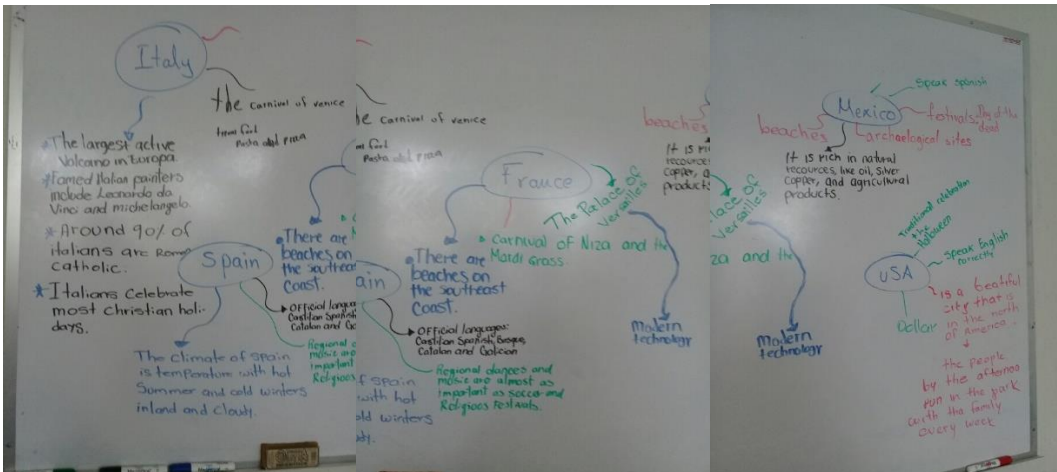 Italy
the carnival of venice
Pasta and
* The largest active
Volcano in Europa.
* Famed Italian painters
include Leonardo da
Vinci and michelangelo.
* Around 90% of
italians are Roma
Catholic.
* Italians Celebrate
most Christian holi-
days.
Spain
• There are
beaches on
the southeast
Coast.
Official langua
Castilian Spanish
Catalan and
Regional d
music are
important
Religious
The climate of Spain
is temperature with hot
Summer and cold winters
inland and Cloudy.
he carnival of venice
Pasta and
France
The Palace of
Versailles
• Carnival of Niza and the
Mardi Grass
modern
technology
There are
beaches on
the southeast
Coast.
ain
Official languages:
Castilian Spanish, Basque,
Catalan and Galician
Regional dances and
music are almost as
important as soccer and
Religious Festivals.
f Spain
with hot
old winters
dy.
beaches
It is ri
recources,
copper, a
products
Mexico
Speak spanish
festivals: Day of the
dead
archaelogical sites
beaches
It is rich in natural
recources, like oil, silver
copper, and agricultural
products.
lace of
Versailles
za and the
modern
technology
USA
Traditional celebration
the
Halloween
Speak English
correctly
Dollar
Is a beatiful
city that is
in the north
of America.
the people
by the afternoo
run in the park
with the family
every week